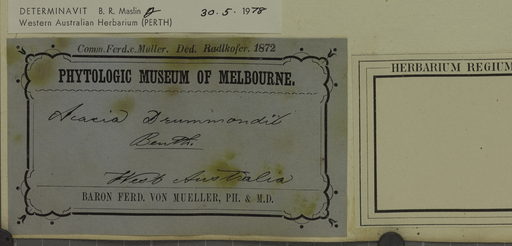 DETERMINAVIT B. R. Maslin 30.5.1978
Western Australian Herbarium (PERTH)
Comm. Ferd. v. Müller. Ded. Radlkofer. 1872
PHYTOLOGIC MUSEUM OF MELBOURNE.
Acacia Drummondii
Benth.
West Australia
BARON FERD. VON MUELLER, PH. & M.D.
HERBARIUM REGIUM